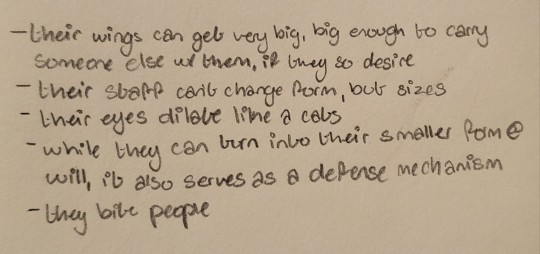 -their wings can get very big, big enough to carry
someone else w/ them, if they so desire
-their staff can't change form, but sizes
-their eyes dilate like a cats
-while they can turn into their smaller form @
will, it also serves as a defense mechanism
-they bite people